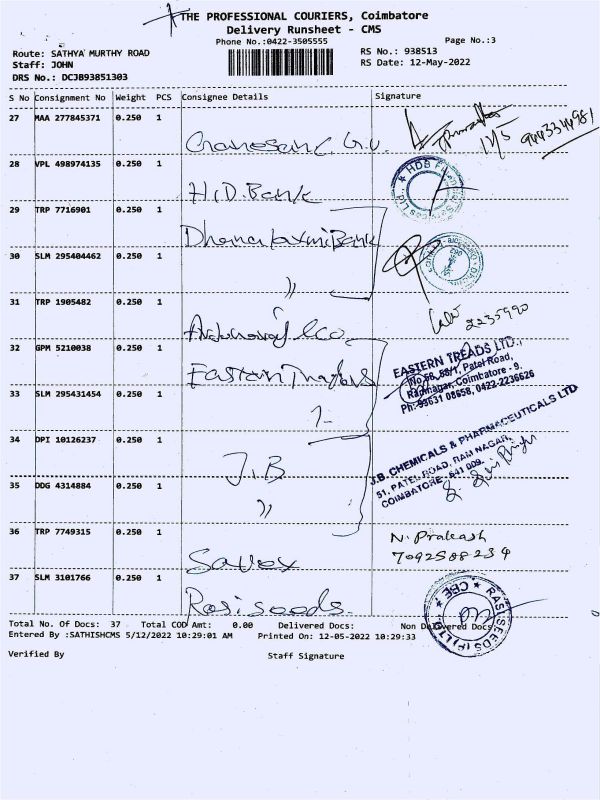 THE PROFESSIONAL COURIERS, Coimbatore
Delivery Runsheet - CMS
Phone No.:0422-3505555
Page No.:3
Route: SATHYA MURTHY ROAD
RS No.: 938513
Staff: JOHN
RS Date: 12-May-2022
DRS No.: DCJB93851303
S No Consignment No Weight PCS Consignee Details Signature
27 MAA 277845371 0.250 1
17/5 9443344981
28 VPL 498974135 0.250 1
H.D. Bank
29 TRP 7716901 0.250 1
Dhanalaxmi Bank
30 SLM 295404462 0.250 1
"
31 TRP 1905482 0.250 1
2235990
32 GPM 5210038 0.250 1
Eastern
EASTERN TREADS LTD.,
No 56, 58/1, Patel Road,
Ramnagar, Coimbatore - 9.
Ph: 93631 08658, 0422-2236626
33 SLM 295431454 0.250 1
34 DPI 10126237 0.250 1
J.B
J.B. CHEMICALS & PHARMACEUTICALS LTD
51, PATEL ROAD, RAM NAGAR,
COIMBATORE - 641 009.
35 DDG 4314884 0.250 1
"
36 TRP 7749315 0.250 1
Savex
N. Prakash
7092588234
37 SLM 3101766 0.250 1
Rasi seeds.
RASI SEEDS (P) LTD ★ CBE ★
Total No. Of Docs: 37 Total COD Amt: 0.00 Delivered Docs: Non Delivered Docs
Entered By :SATHISHCMS 5/12/2022 10:29:01 AM Printed On: 12-05-2022 10:29:33
Verified By Staff Signature